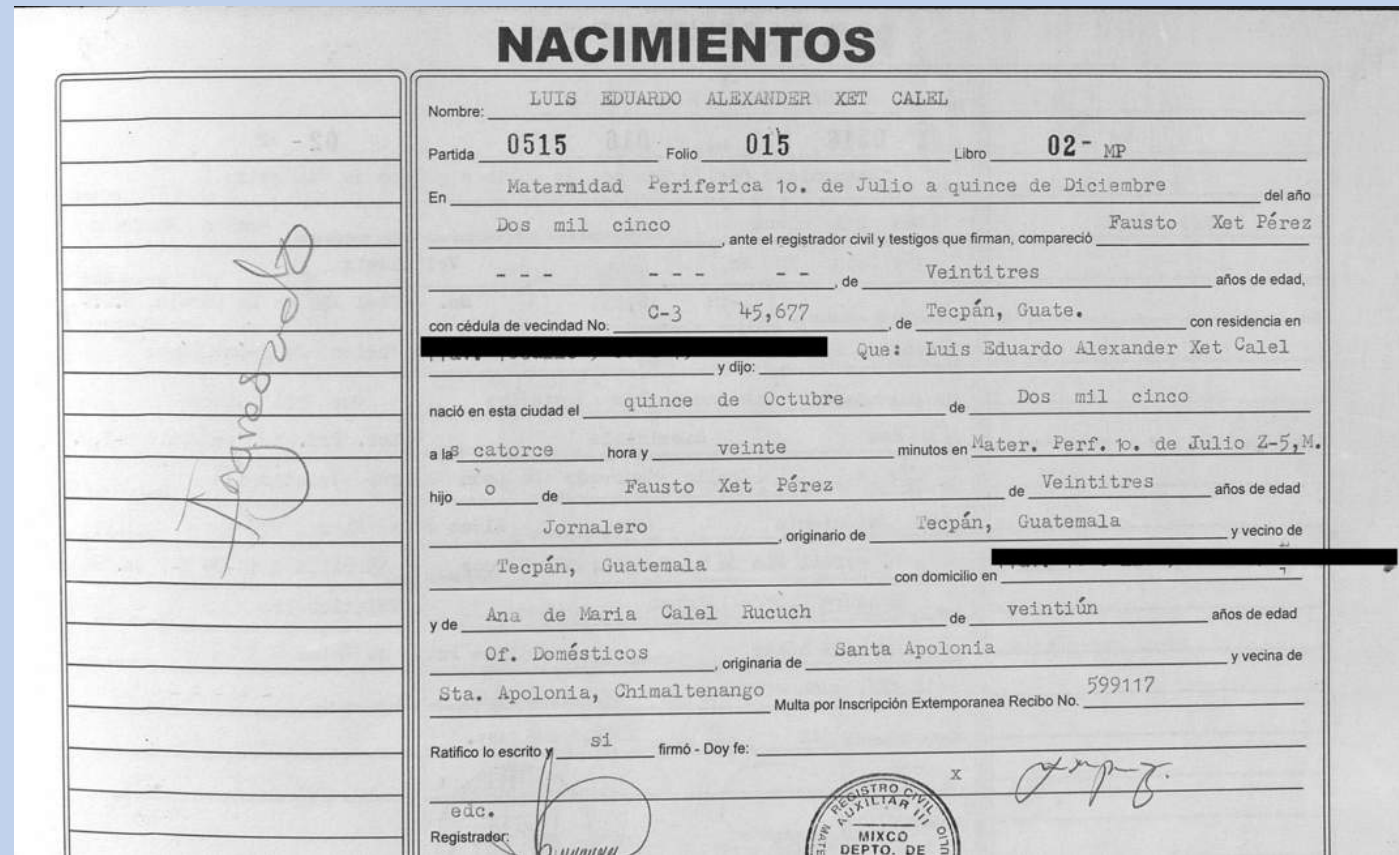 NACIMIENTOS
Nombre: LUIS EDUARDO ALEXANDER XET CALEL
Partida 0515 Folio 015 Libro 02- MP
En Maternidad Periferica 1o. de Julio a quince de Diciembre del año
Dos mil cinco, ante el registrador civil y testigos que firman, compareció Fausto Xet Pérez
- - - - - - - -, de Veintitres años de edad,
con cédula de vecindad No. C-3 45,677, de Tecpán, Guate. con residencia en
y dijo: Que: Luis Eduardo Alexander Xet Calel
nació en esta ciudad el quince de Octubre de Dos mil cinco
a las catorce hora y veinte minutos en Mater. Perf. 1o. de Julio Z-5,M.
hijo o de Fausto Xet Pérez de Veintitres años de edad
Jornalero, originario de Tecpán, Guatemala y vecino de
Tecpán, Guatemala con domicilio en
y de Ana de Maria Calel Rucuch de veintiún años de edad
Of. Domésticos, originaria de Santa Apolonia y vecina de
Sta. Apolonia, Chimaltenango Multa por Inscripción Extemporanea Recibo No. 599117
Ratifico lo escrito y si firmó - Doy fe:
x
edc.
Registrador:
REGISTRO CIVIL
AUXILIAR III
MIXCO
DEPTO. DE